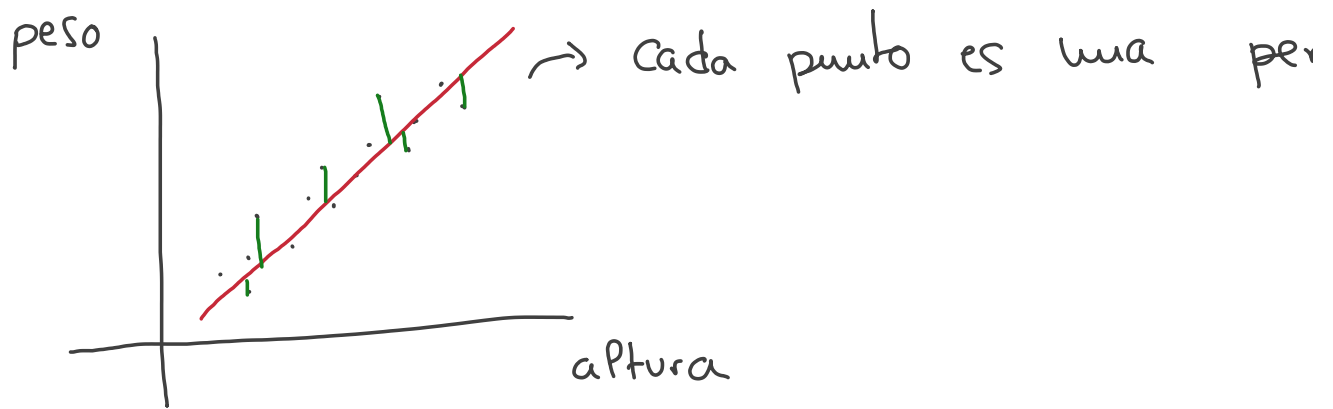 peso
cada punto es una per
altura